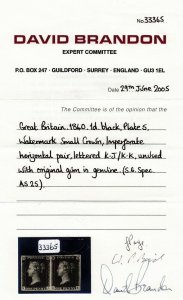 No 33365
DAVID BRANDON
EXPERT COMMITTEE
P.O. BOX 247 · GUILDFORD · SURREY · ENGLAND · GU3 1EL
Date 29TH June 2005
The Committee is of the opinion that the
Great Britain. 1840. 1d. black, Plate 5,
Watermark Small Crown, Imperforate
horizontal pair, lettered K-J/K-K, unused
with original gum is genuine. (S.G. Spec
AS25).
33365
David Brandon